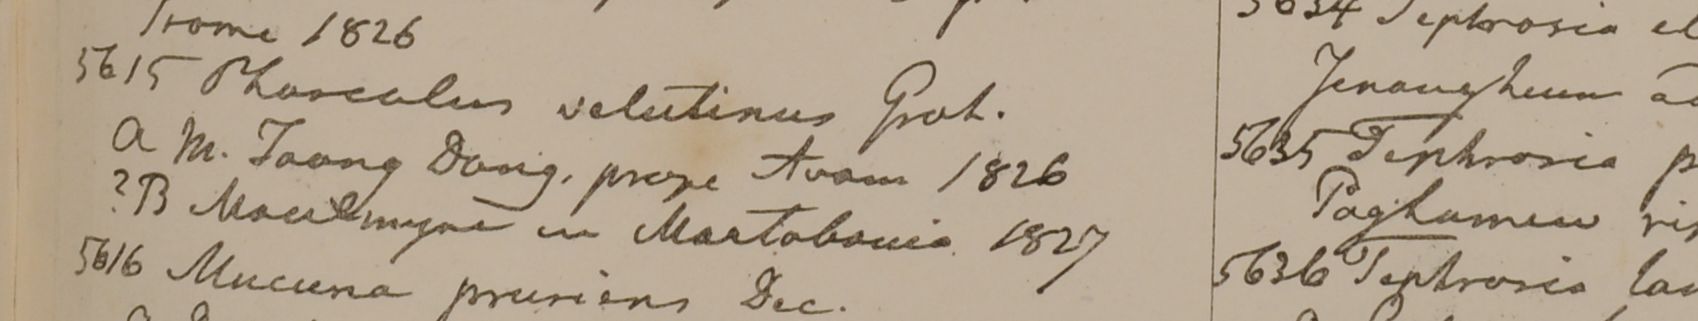 Prome 1826
5615 Phaseolus velutinus Grah.
a M. Taong Dong, prope Avam 1826
?B Moulmyne in Martabania 1827
5616 Mucuna pruriens Dec.
5634 Tephrosia
Yenangheum
5635 Tephrosia
Paghamew
5636 Tephrosia